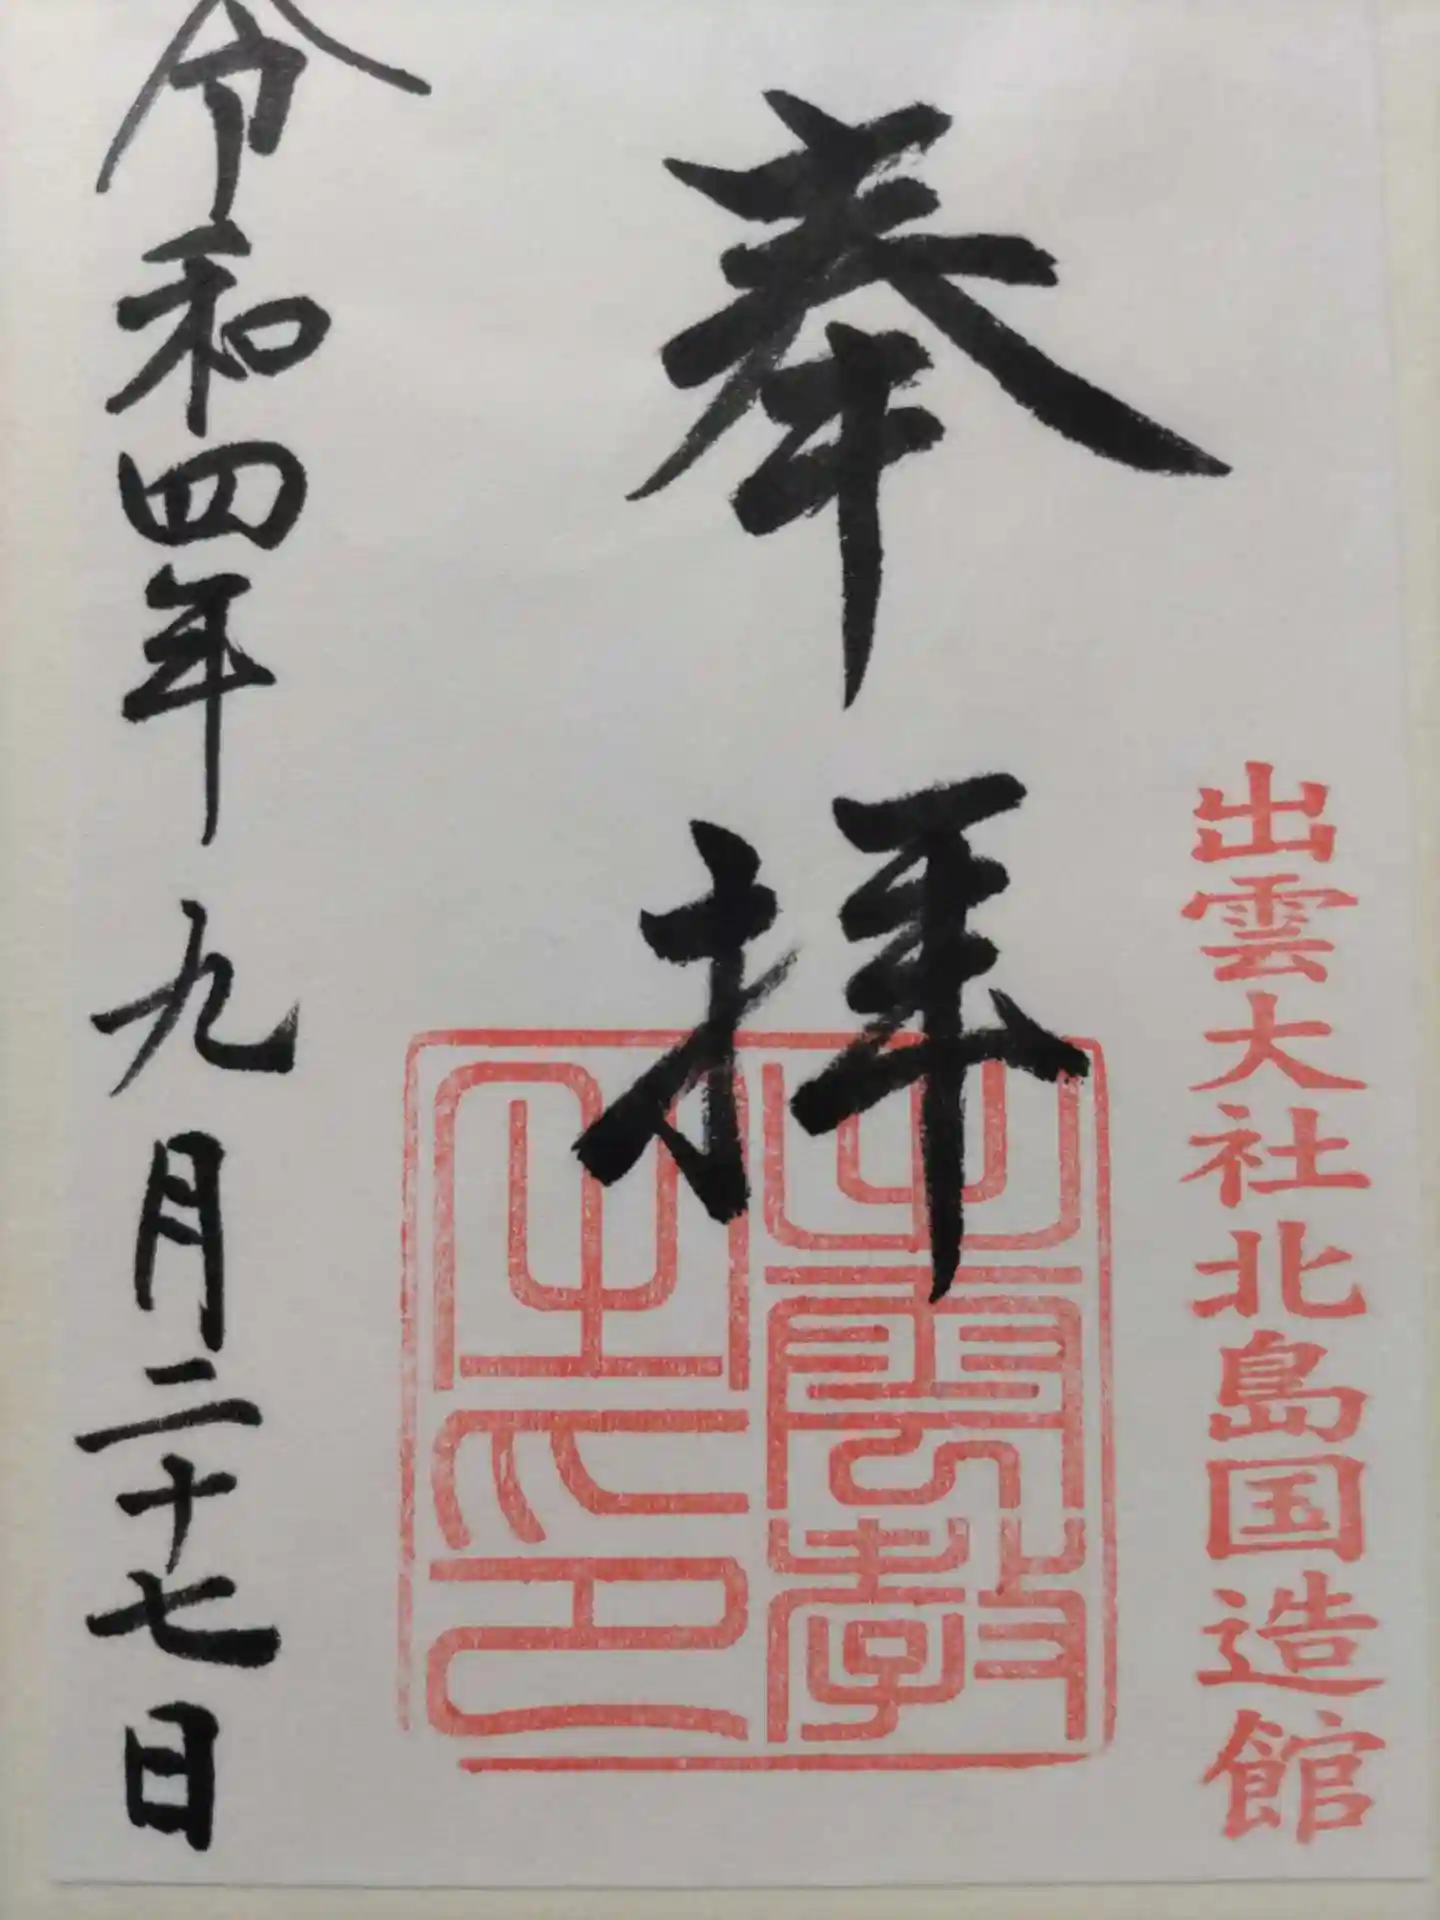 出雲大社北島国造館
奉拝
出雲教
之印
令和四年九月二十七日